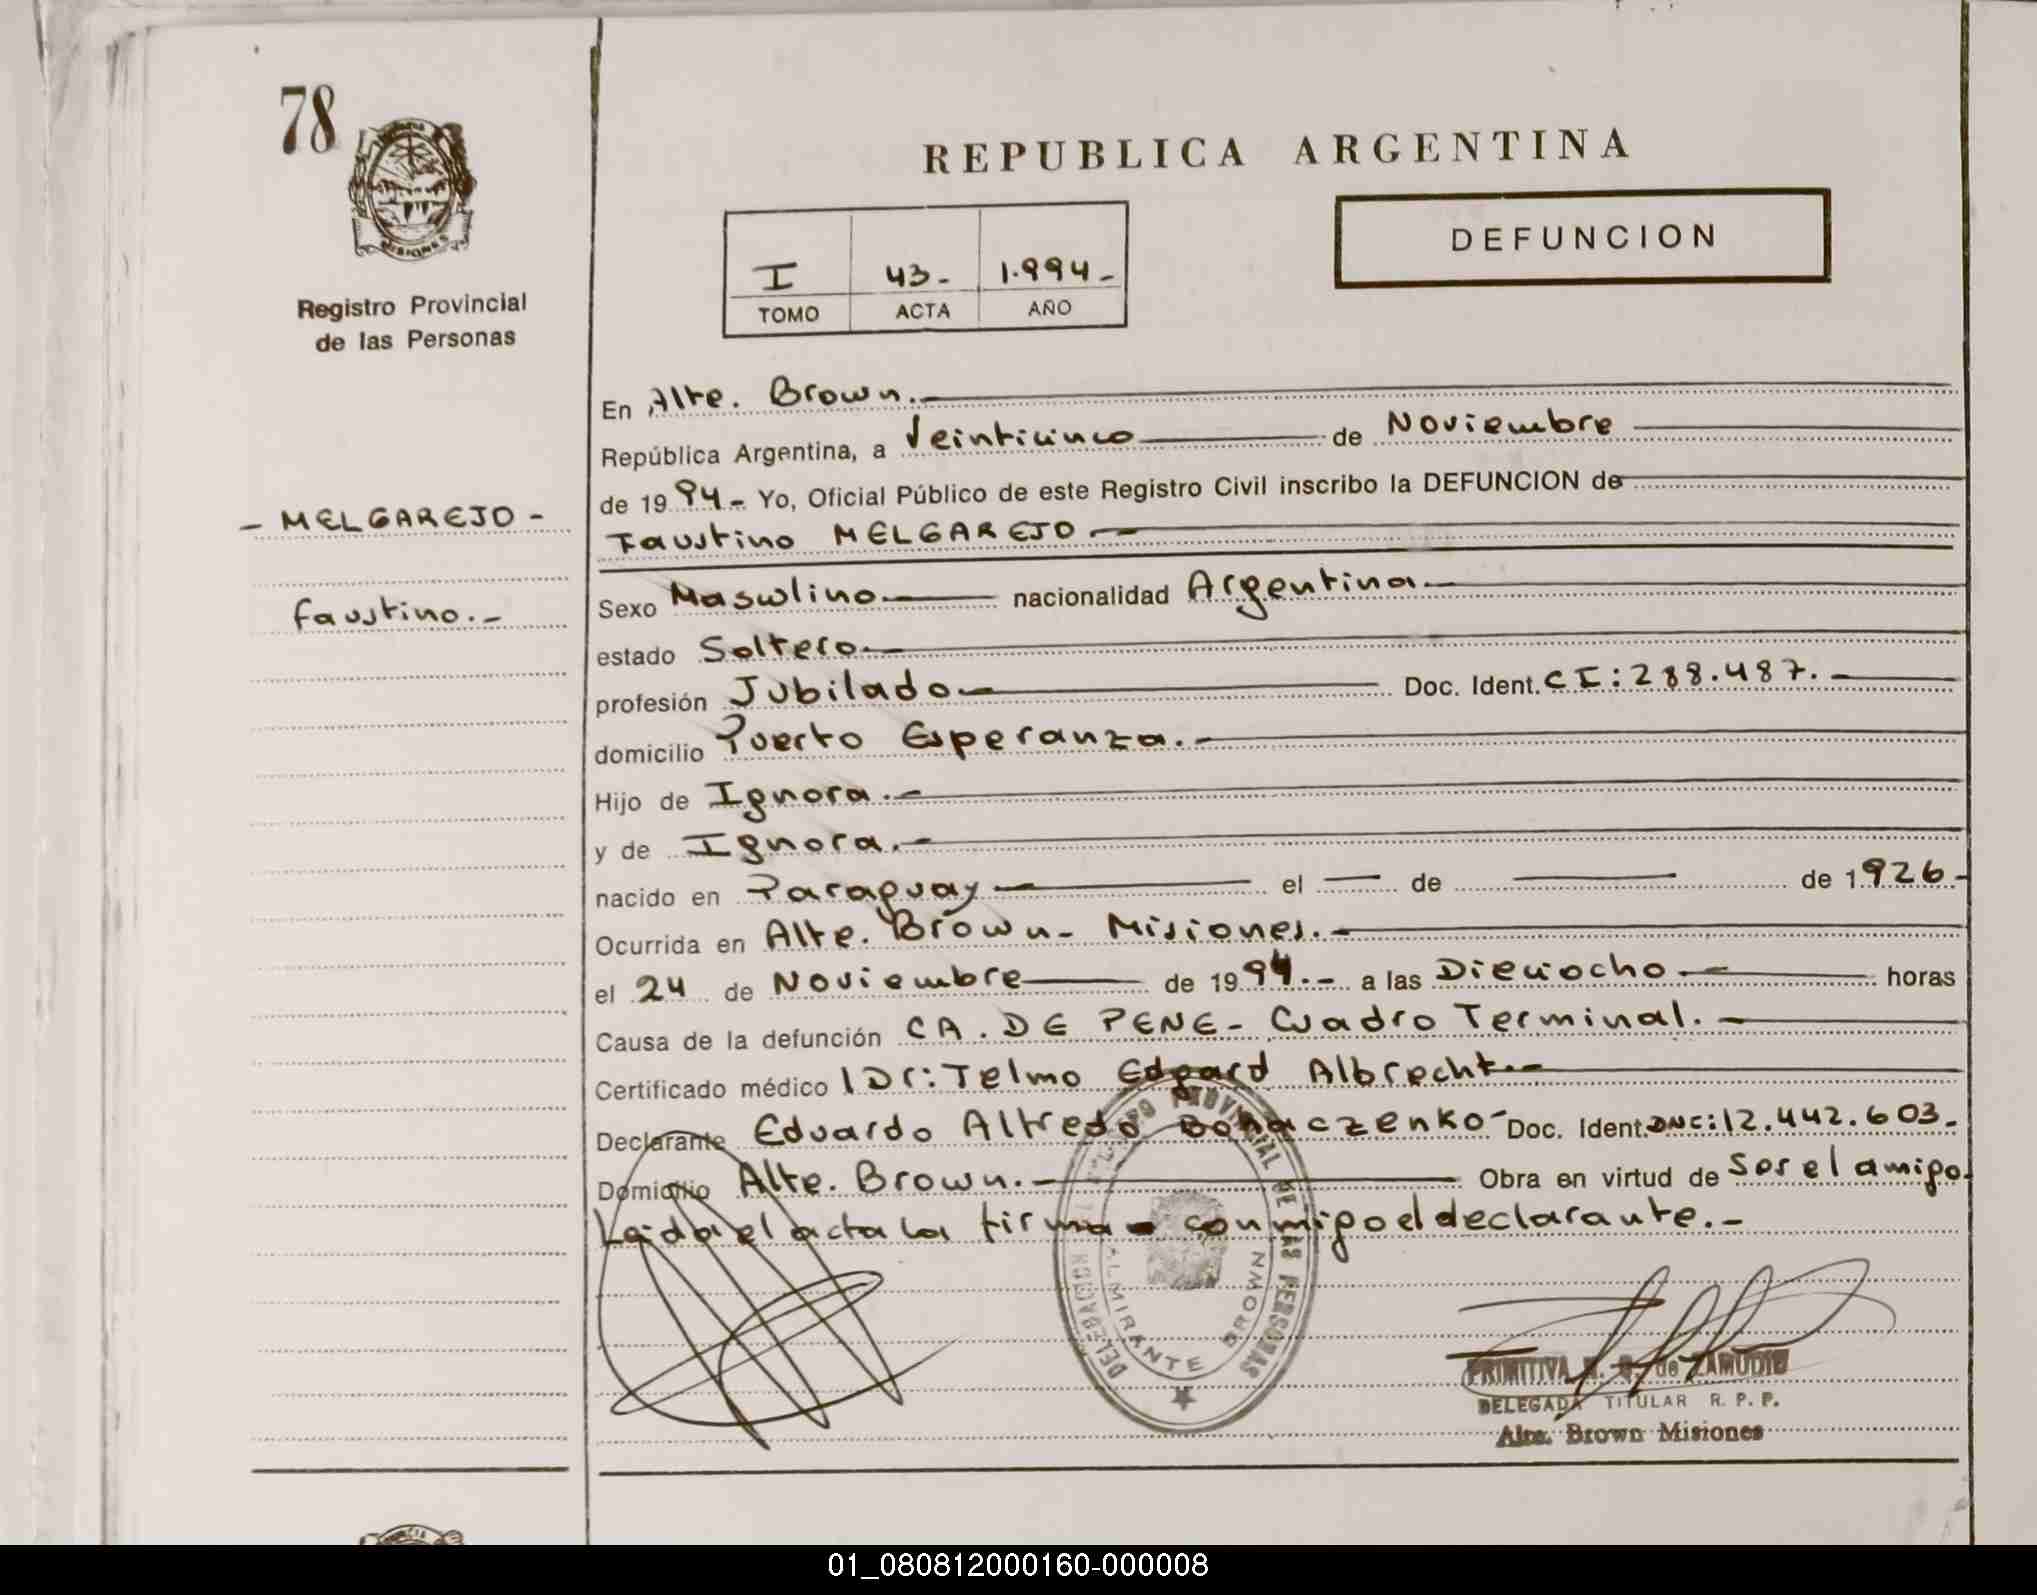 78
MISIONES
Registro Provincial
de las Personas
- MELGAREJO -
Faustino.-
REPUBLICA ARGENTINA
I 43- 1.994-
TOMO ACTA AÑO
DEFUNCION
En Alte. Brown.
República Argentina, a Veinticinco de Noviembre
de 1994- Yo, Oficial Público de este Registro Civil inscribo la DEFUNCION de
Faustino MELGAREJO
Sexo Masculino nacionalidad Argentina
estado Soltero
profesión Jubilado Doc. Ident. CI: 288.487.
domicilio Puerto Esperanza.-
Hijo de Ignora.-
y de Ignora.-
nacido en Paraguay el de de 1926-
Ocurrida en Alte. Brown- Misiones.-
el 24 de Noviembre de 1994.- a las Dieciocho horas
Causa de la defunción CA. DE PENE- Cuadro Terminal.-
Certificado médico Dr: Telmo Edgard Albrecht.-
Declarante Eduardo Alfredo Doc. Ident. DNC: 12.442.603.-
Domicilio Alte. Brown.- Obra en virtud de Ser el amigo.
Leida el acta la firma conmigo el declarante.-
REGISTRO PROVINCIAL DE LAS PERSONAS
DELEGACION
ALMIRANTE BROWN
PRIMITIVA de ZAMUDIO
DELEGADA TITULAR R. P. P.
Alte. Brown Misiones
01_080812000160-000008